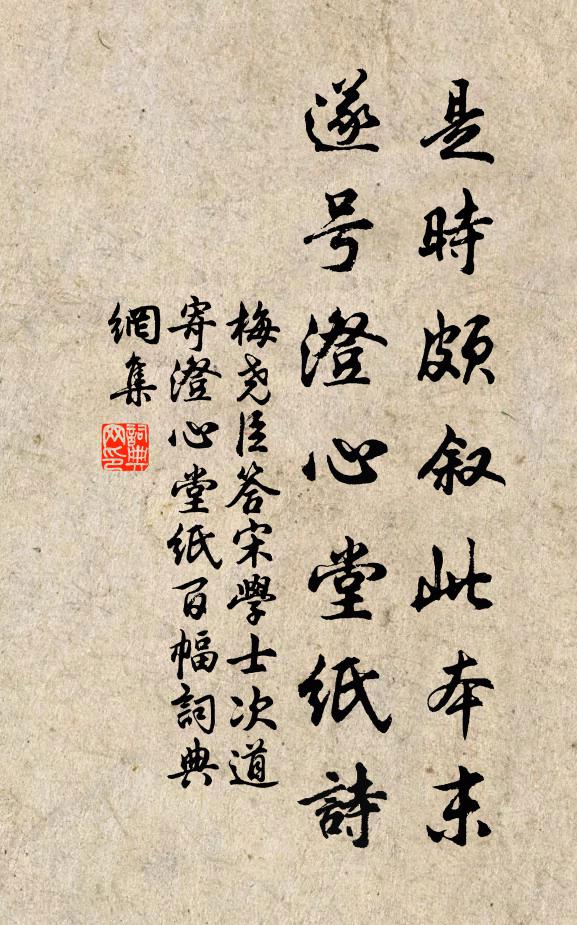 是時頗叙此本末
遂号澄心堂紙詩
梅尧臣答宋學士次道
寄澄心堂紙百幅詞典
網集
詞典
网印